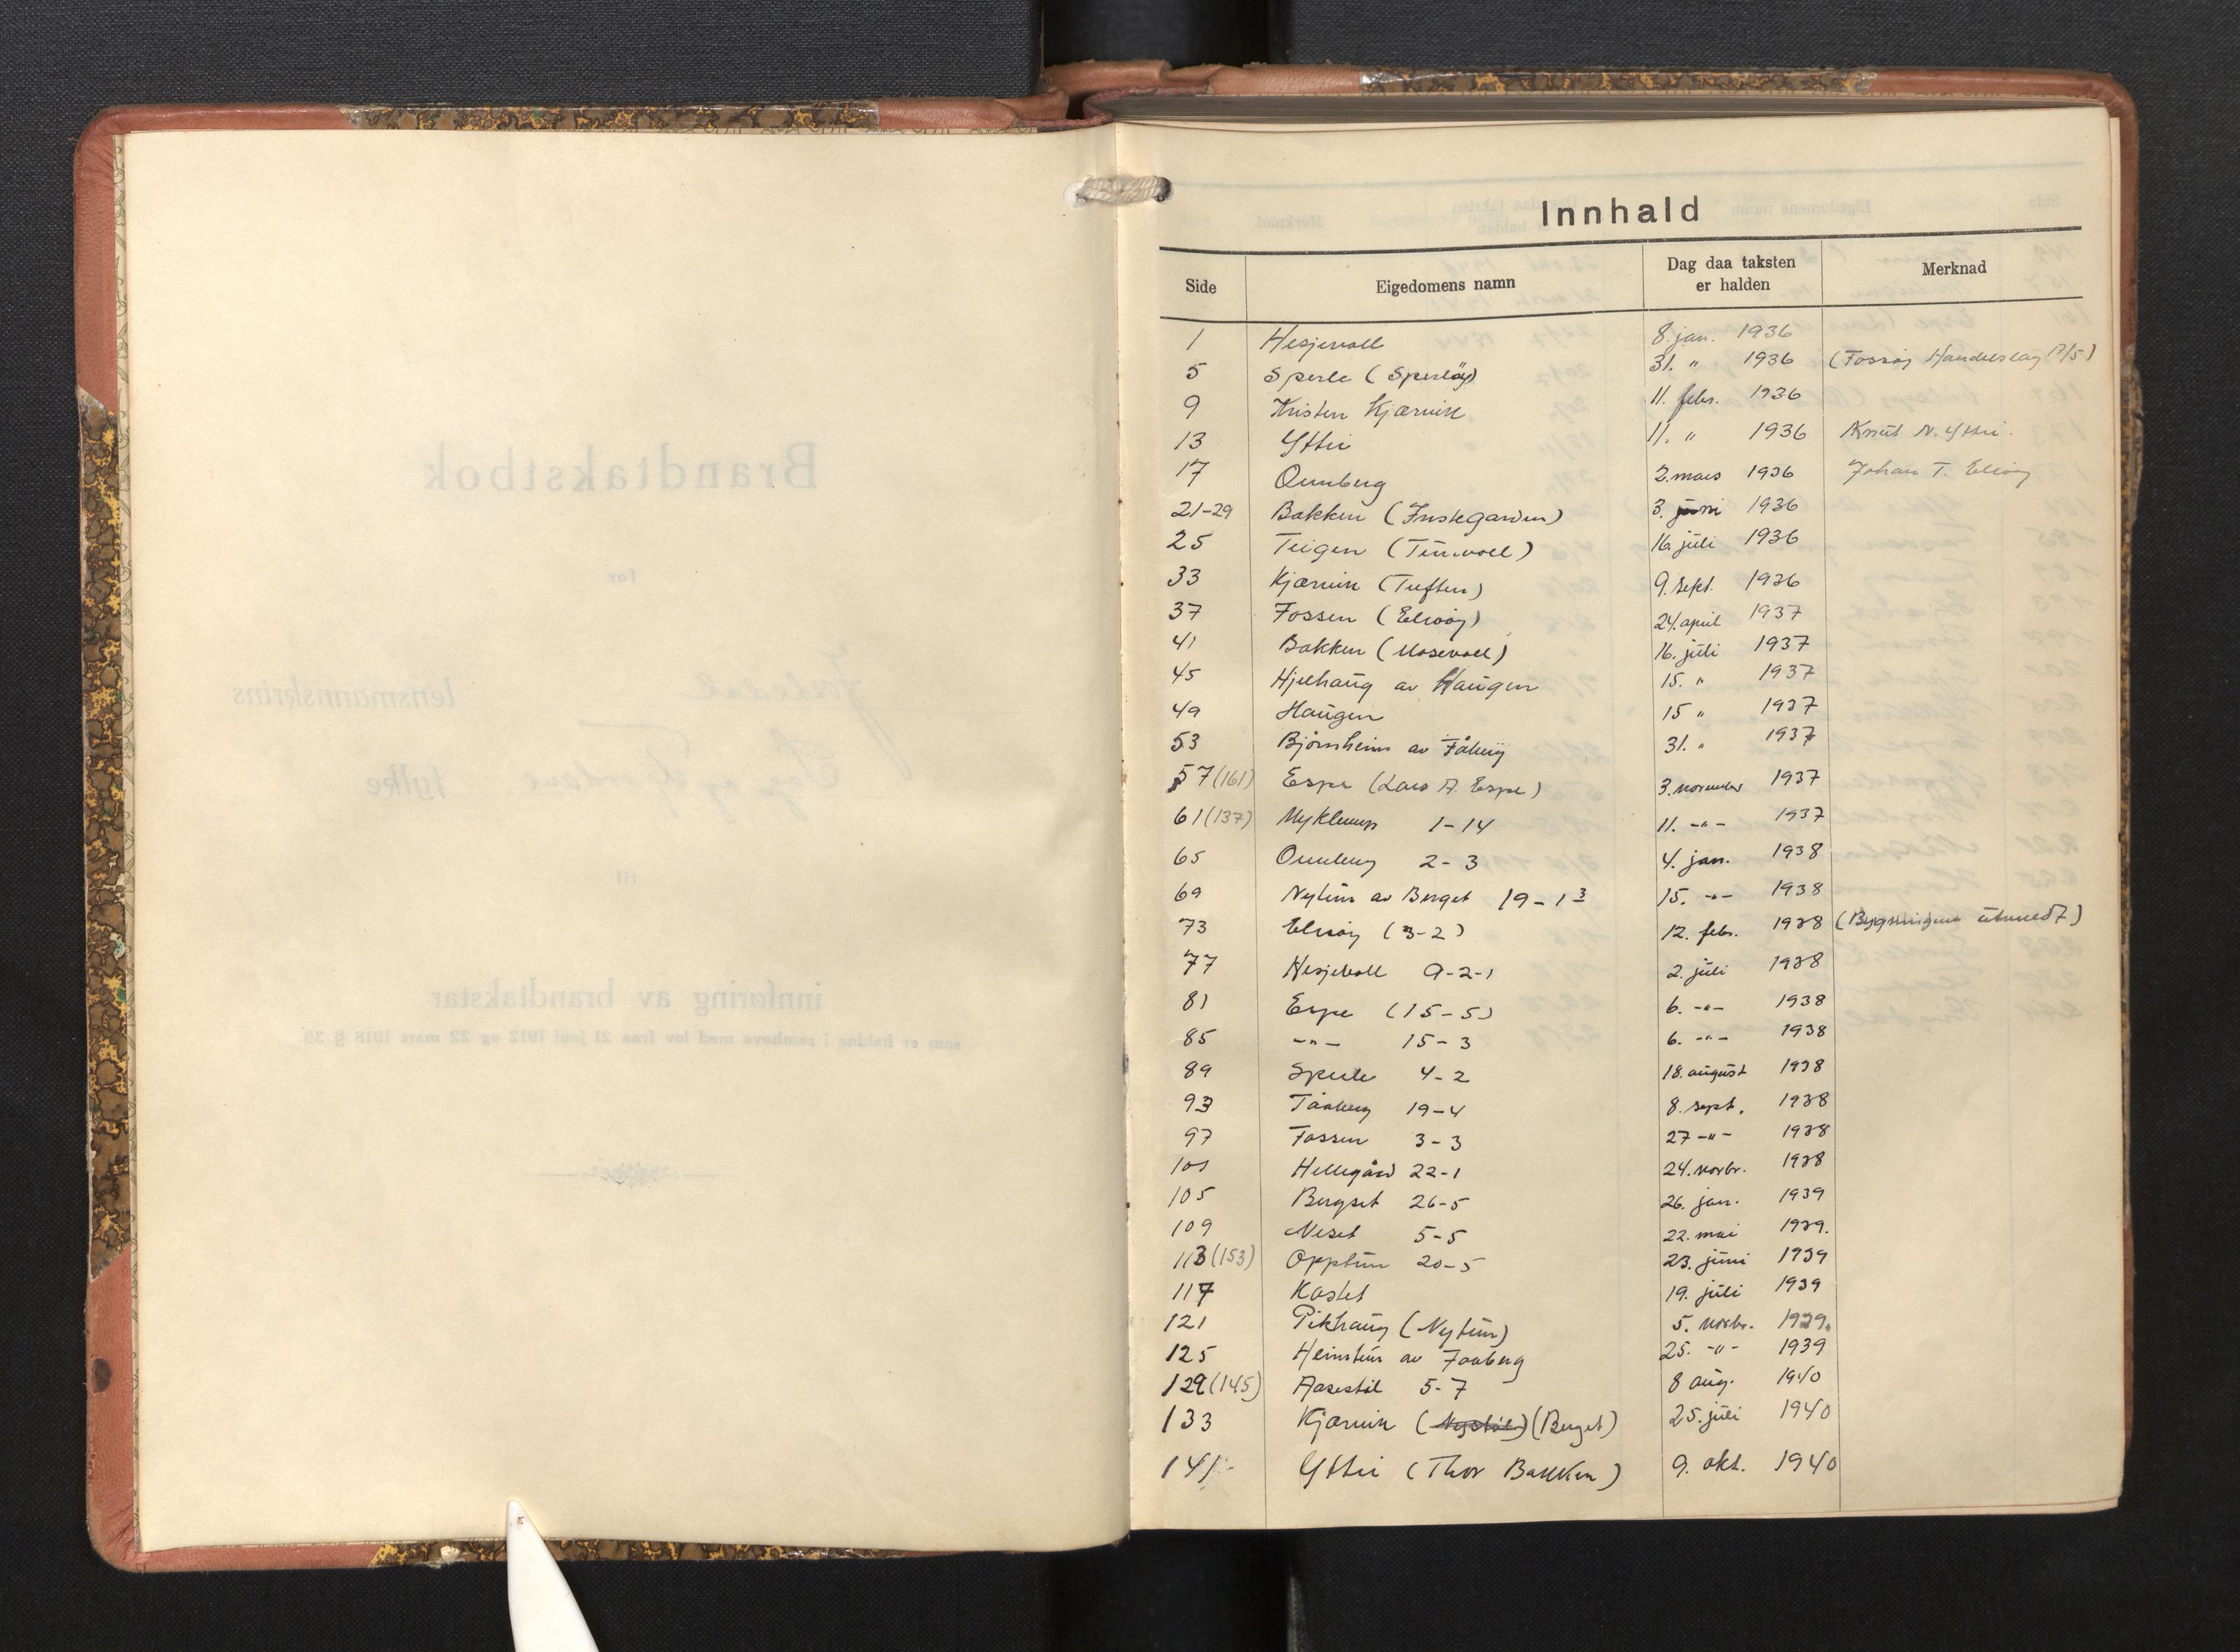 Innhald
Side Eigedomens namn Dag daa taksten er halden Merknad
1 Hesjevoll 8. jan. 1936
5 Sperle (Sperløy) 31. " 1936 (Fossøy Handelslag A/S)
9 Kristen Kjærvik 11. febr. 1936
13 Yttri 11. " 1936 Knut N. Yttri.
17 Ormberg 2. mars 1936 Johan T. Elvøy
21-29 Bakken ( 3. juni 1936
25 Teigen (Tunvoll) 16. juli 1936
33 Kjærvik (Tuften) 9. sept. 1936
37 Fossen (Elvøy) 24. april 1937
41 Bakken (Mosevoll) 16. juli 1937
45 Hjelhaug av Haugen 15. " 1937
49 Haugen 15 " 1937
53 Bjørnheim av Fåberg 31. " 1937
57 (161) Espe (Lars A. Espe) 3. november 1937
61 (137) Myklemyr 1-14 11. -"- 1937
65 Ormberg 2-3 4. jan. 1938
69 Nytun av Berget 19-13 15. -"- 1938
73 Elvøy (3-2) 12. febr. 1938 (Bygningene utmeldt)
77 Hesjevoll 9-2-1 2. juli 1938
81 Espe (15-5) 6. -"- 1938
85 -"- 15-3 6. -"- 1938
89 Sperle 4-2 18. august 1938
93 Fåaberg 19-4 8. sept. 1938
97 Fossen 3-3 27 -"- 1938
101 Hellegård 22-1 24. novbr. 1938
105 Bergset 26-5 26. jan. 1939
109 Neset 5-5 22. mai 1939.
113 (153) Opptun 20-5 23. juni 1939
117 Kastet 19. juli 1939
121 Pikhaug (Nytun) 5. novbr. 1939.
125 Heimtun av Faaberg 25. -"- 1939
129 (145) Aasestøl 5-7 8 aug. 1940
133 Kjærvik (Nystøl) (Berget) 25. juli 1940
141 Yttri (Thor Bakken) 9. okt. 1940